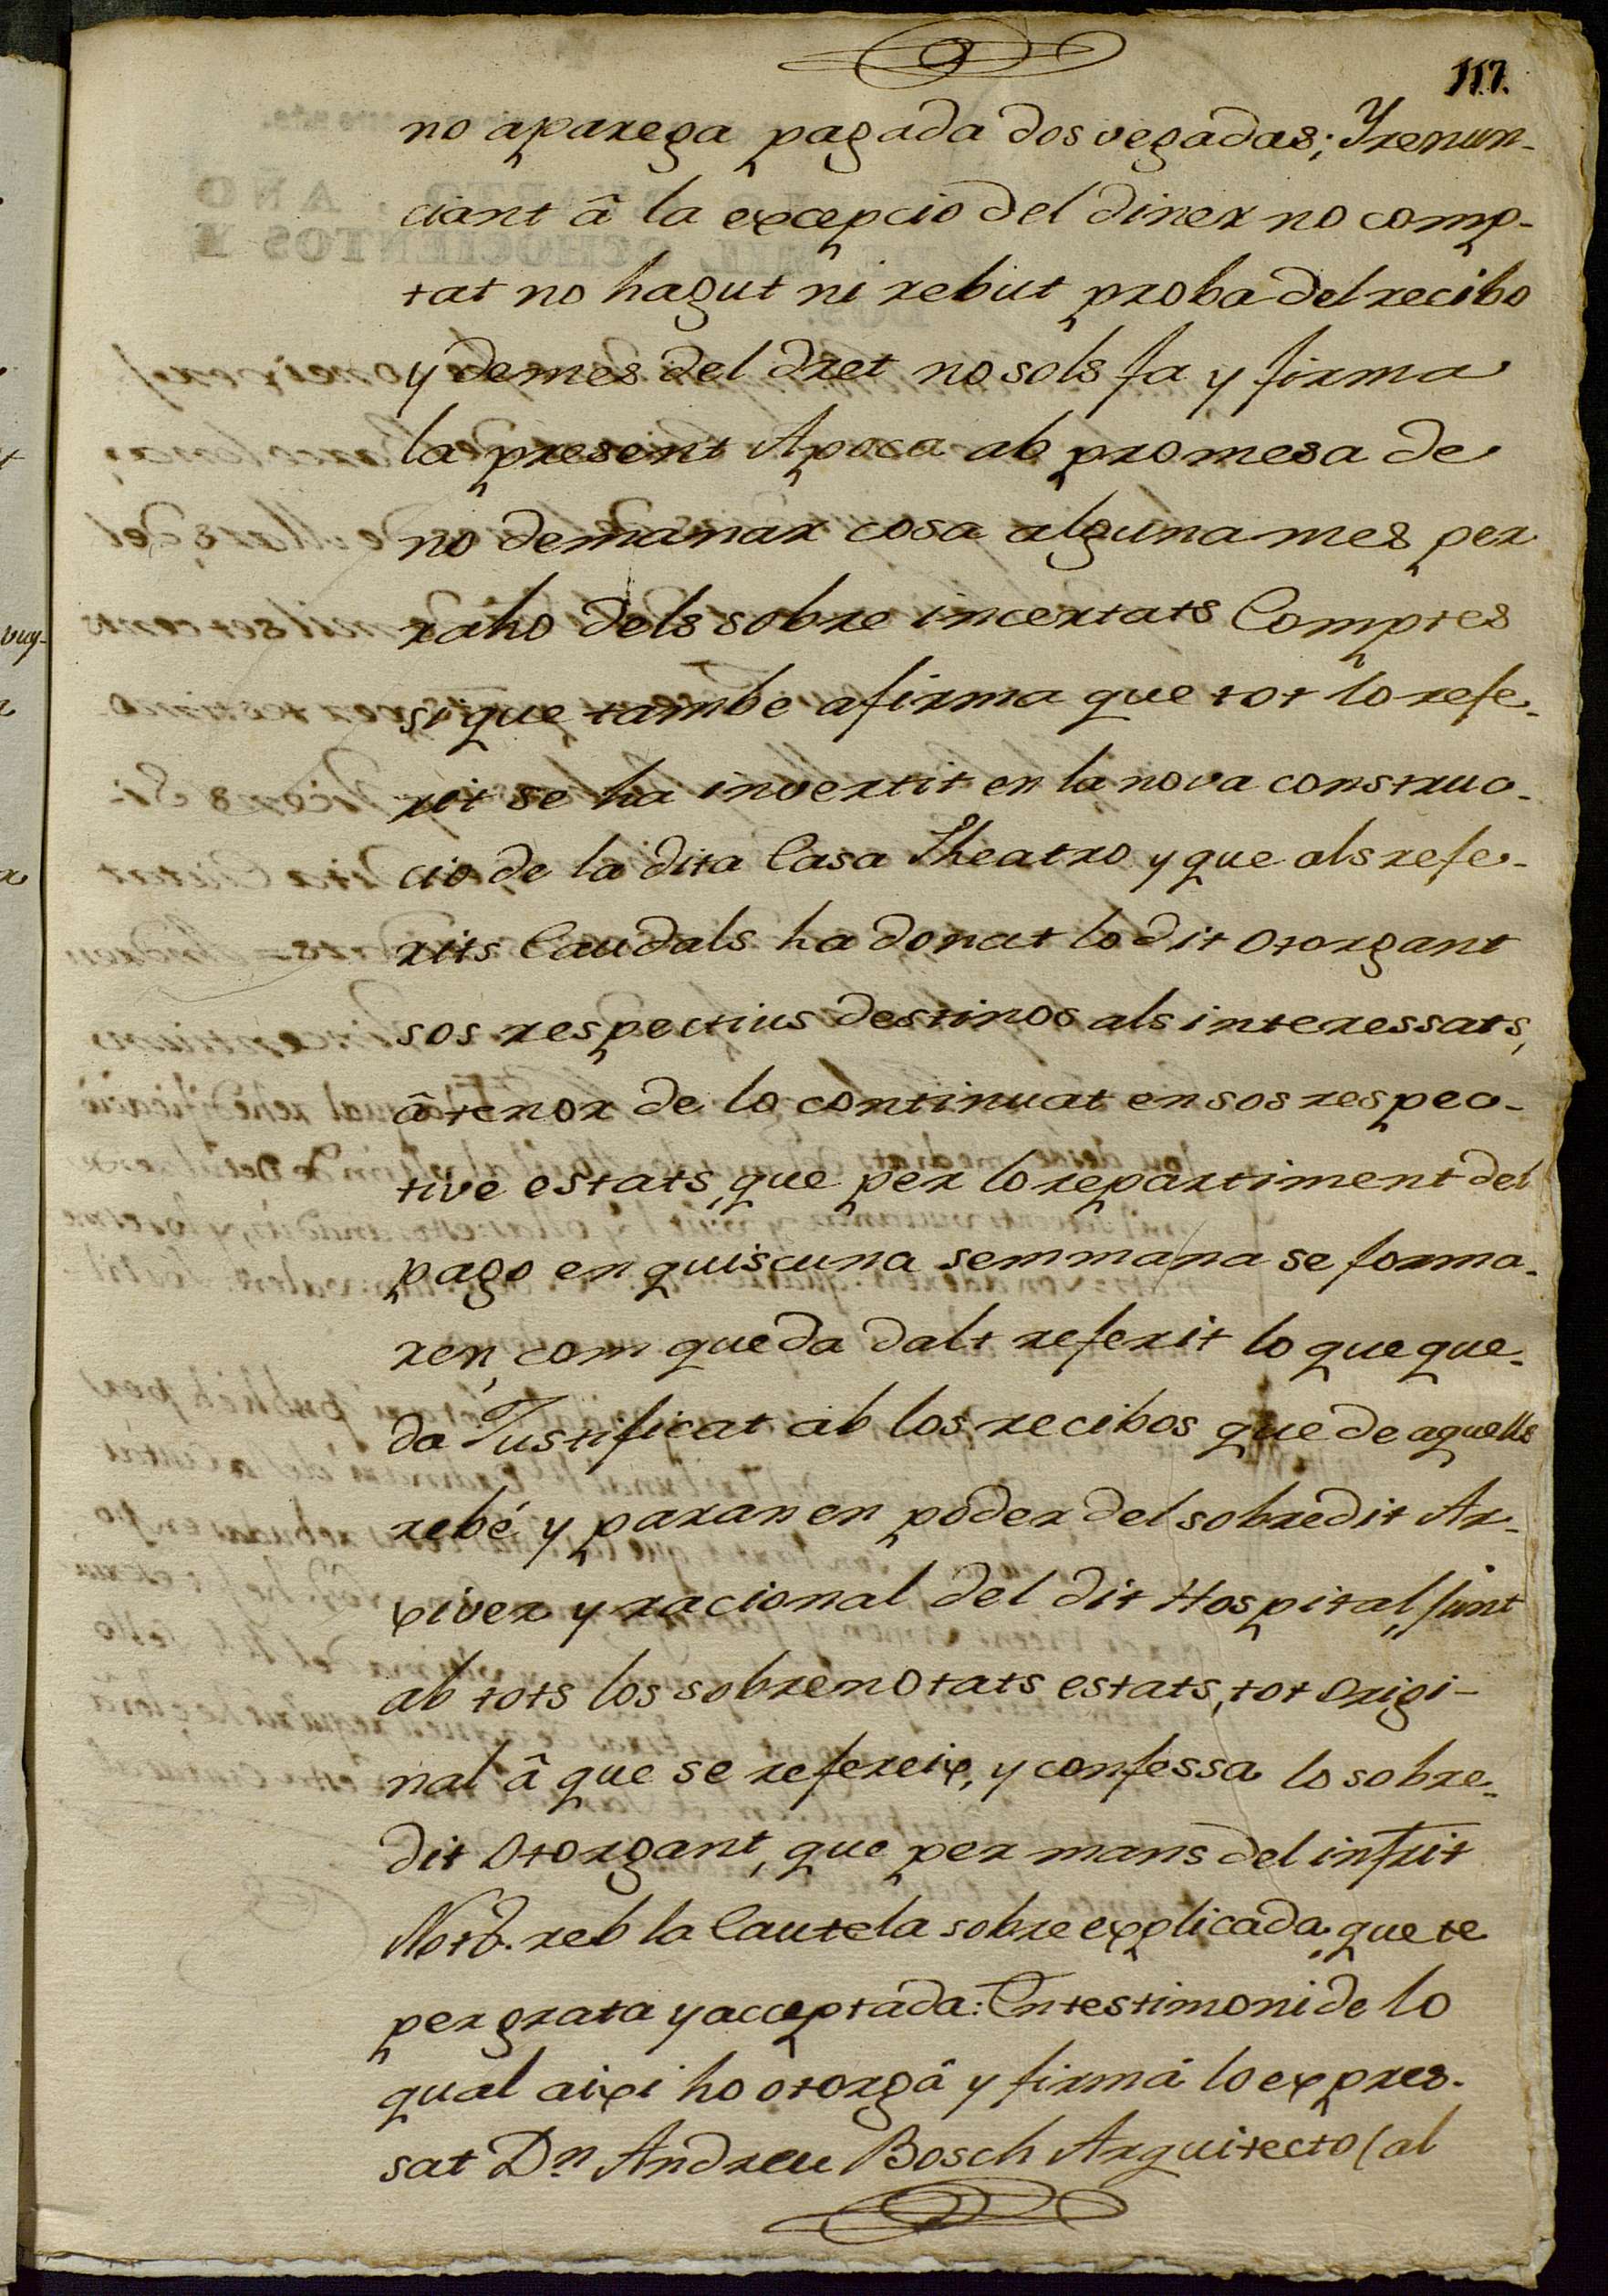 117.
no aparega pagada dos vegadas; Y renun-
ciant â la excepcio del diner no comp-
tat no hagut ni rebut proba del recibo
y demes del dret no sols fa y firma
la present Apoca ab promesa de
no demanar cosa alguna mes per
raho dels sobre incertats Comptes
si que tambe afirma que tot lo refe-
rit se ha invertit en la nova construc-
cio de la dita Casa Theatro y que als refe-
rits Caudals ha donat lo dit Otorgant
sos respectius destinos als interessats,
â tenor de lo continuat en sos respec-
tive estats, que per lo repartiment del
pago en quiscuna semmana se forma-
ren, com queda dalt referit lo que que-
da Justificat ab los recibos que de aquells
rebé y paran en poder del sobredit Ar-
xiver y racional del dit Hospital, junt
ab tots los sobrenotats estats, tot Origi-
nal â que se refereix, y confessa lo sobre-
dit Otorgant, que per mans del infrit
Notô. reb la Cautela sobre explicada que te
per grata y acceptada: En testimoni de lo
qual aixi ho otorgâ y firmá lo expres-
sat Dn. Andreu Bosch Arquitecto (al